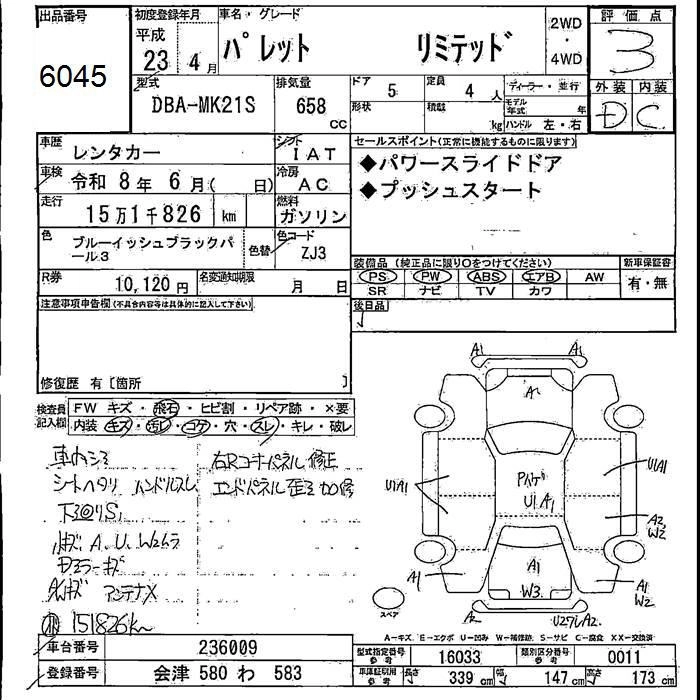 出品番号
6045
初度登録年月
平成
23 4月
車名・グレード
パレット リミテッド
2WD
・
4WD
評価点
3
外装 内装
D C
型式
DBA-MK21S
排気量
658
CC
ドア 5
定員 4 人
形状
積載
kg
ディーラー・並行
モデル
年式 年
ハンドル 左・右
車歴
レンタカー
シフト
IAT
車検
令和 8年 6月( 日)
冷房
AC
走行
15万1千826 km
燃料
ガソリン
色
ブルーイッシュブラックパール3
色替
色コード
ZJ3
R券
10,120円
名変通知期限
月 日
セールスポイント(正常に機能するものに限ります)
◆パワースライドドア
◆プッシュスタート
装備品(純正品に限り○をつけてください)
PS PW ABS エアB AW
SR ナビ TV カワ
新車保証書
有・無
後日品
注意事項申告欄(不具合内容等は具体的に記入して下さい)
修復歴 有[箇所 ]
検査員
記入欄
FW キズ・飛石・ヒビ割・リペア跡・×要
内装・キズ・汚レ・コゲ・穴・スレ・キレ・破レ
車内シミ
シートヘタリ ハンドルスレ
右Rコーナーパネル修正
エンドパネル歪ミ加修
アンテナX
151826km
A1 A1
A
UIA1
UIA1
U1.A1
A2
W2
A1
A1
W3
A1
W2
A2
スペア
A-キズ E-エクボ U-凹み W-補修跡 S-サビ C-腐食 XX-交換済
車台番号
236009
登録番号
会津 580 わ 583
型式指定番号
参考
16033
類別区分番号
参考
0011
車庫証明用
参考
長さ 339 cm
幅 147 cm
高さ 173 cm